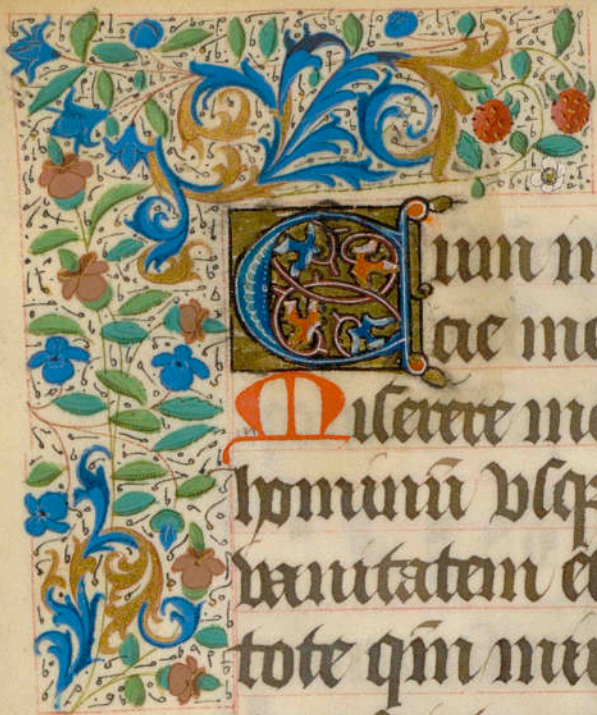 Cum in
cie me
Miserere me
hominū vsq
vanitatem et
tote qm̄ miri